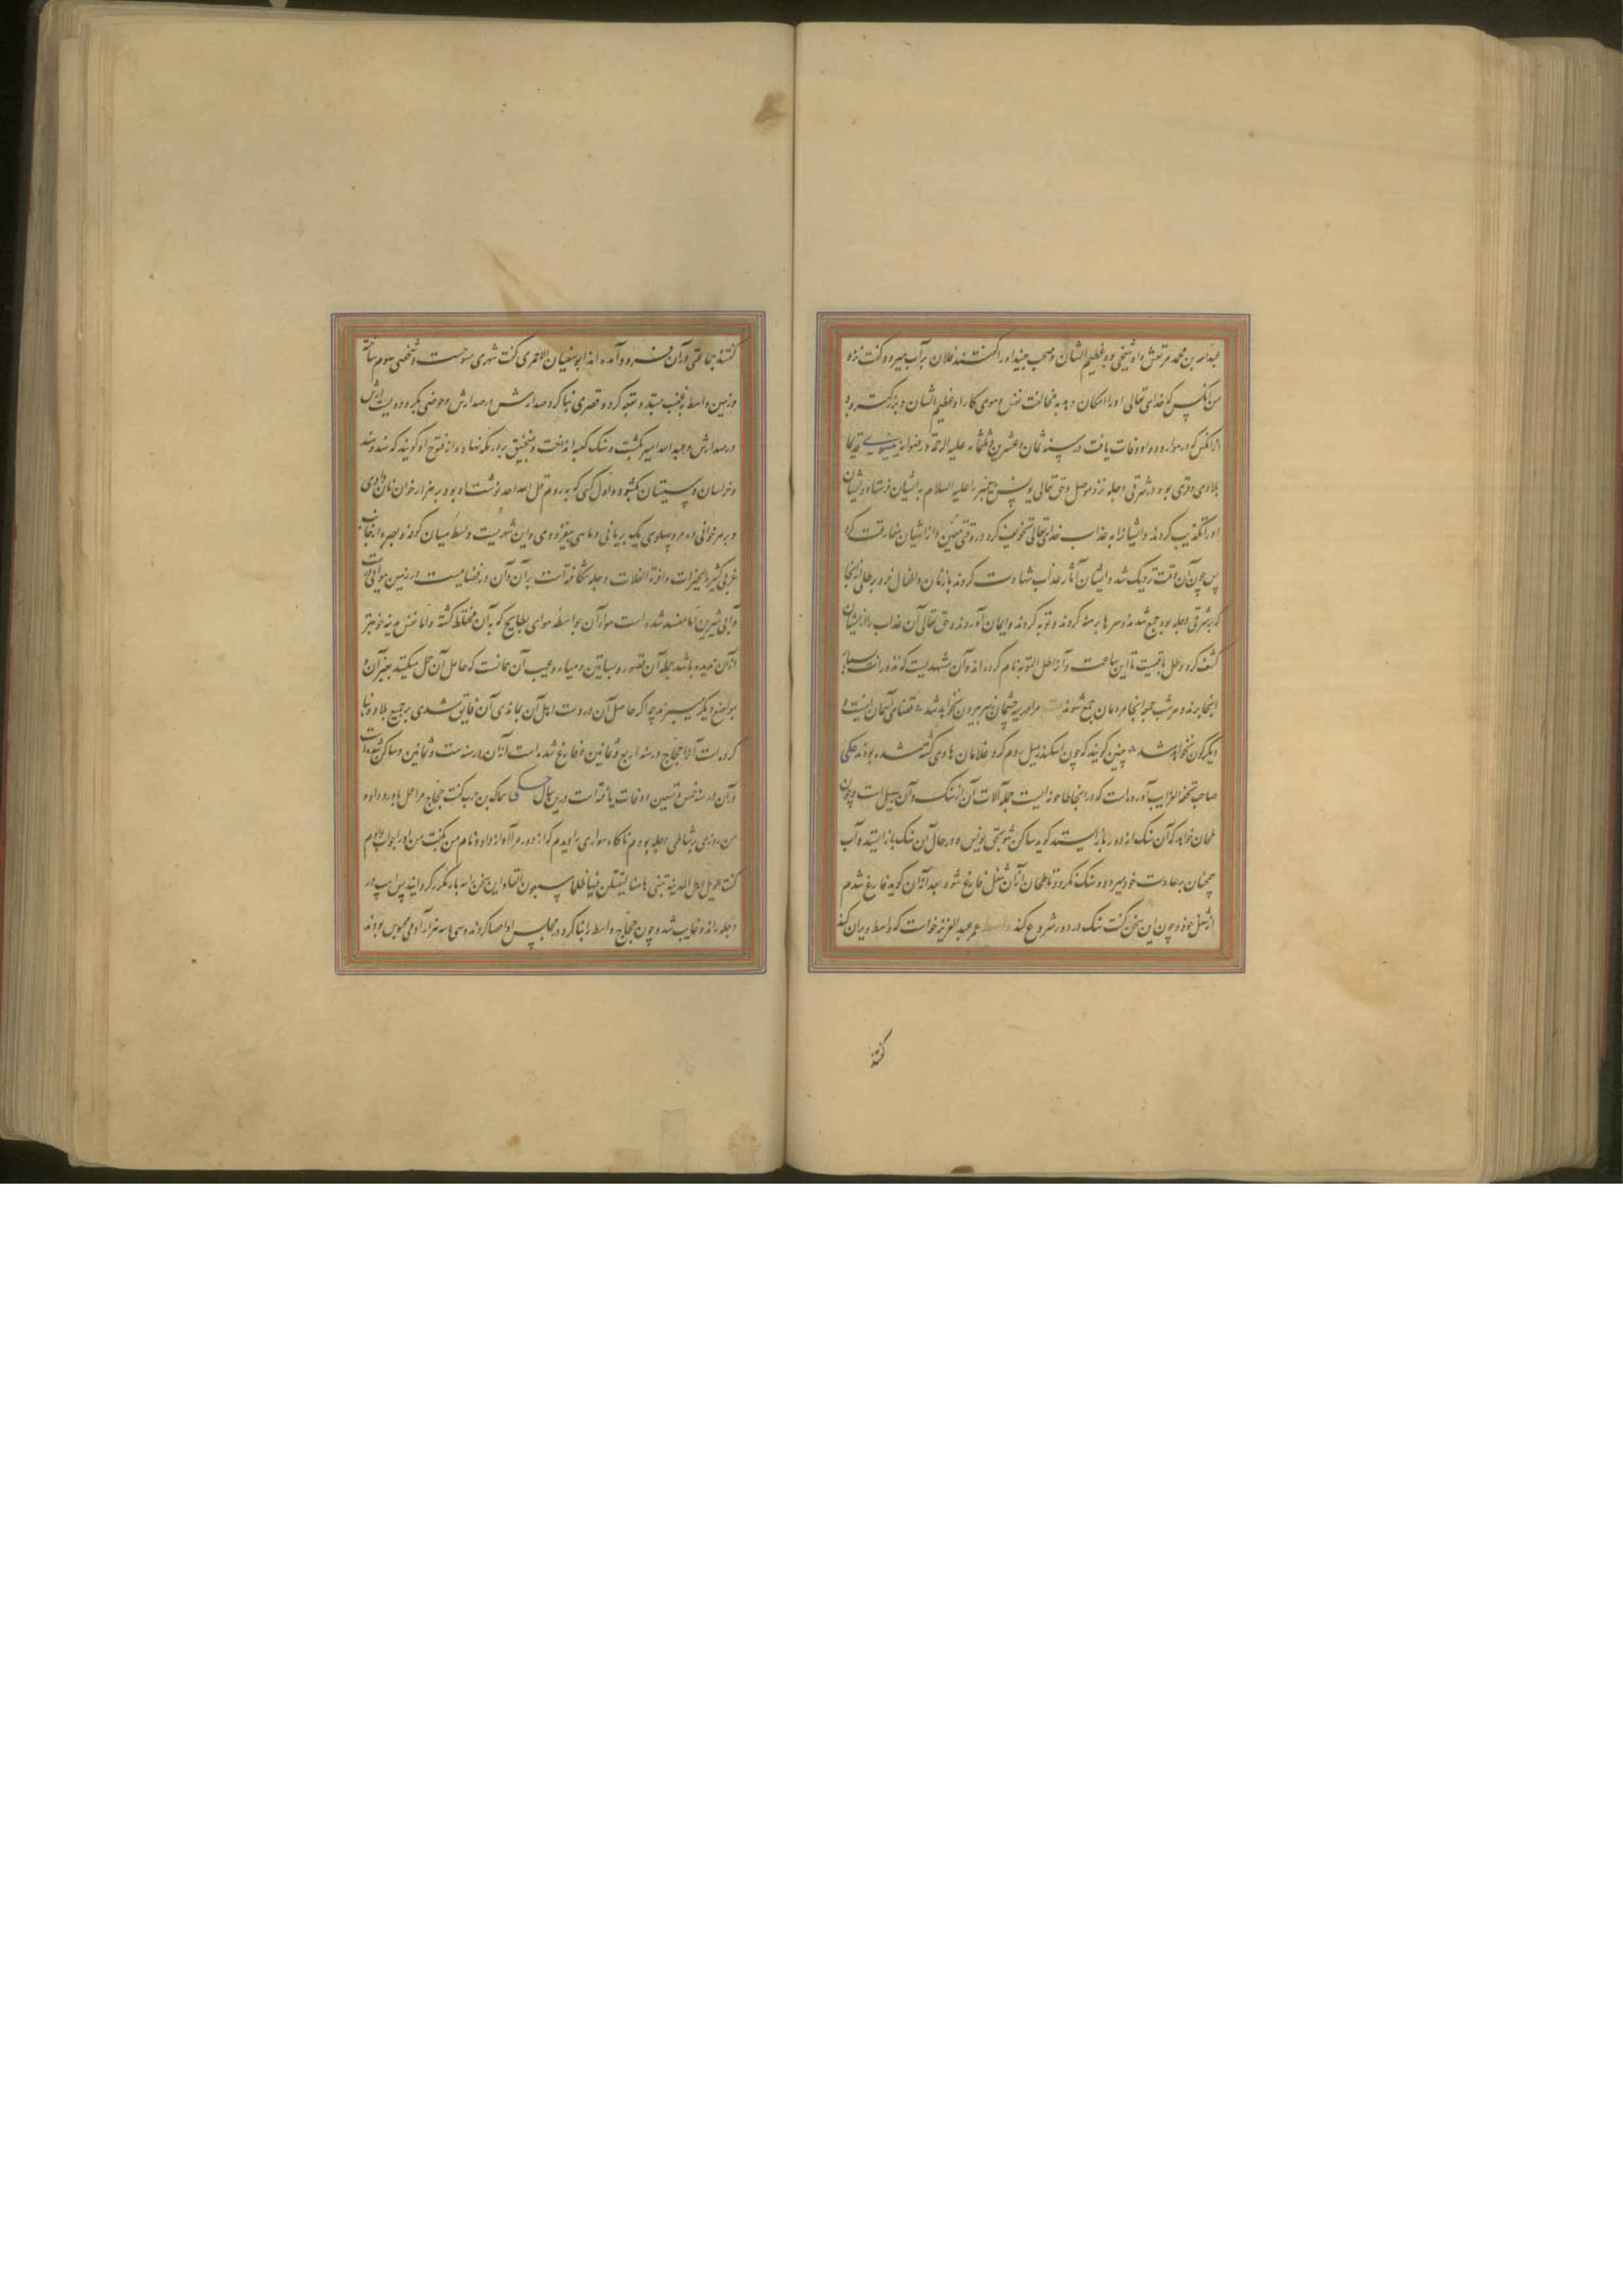 عبدالله بن محمد مرتعش و او شیخی بود عظیم الشان و صحب جنید او را گفتند فلان بر آب میرود گفت نزد
من آنکس که خدای تعالی او را امکان دهد به مخالفت نفس و هوای کار او عظیم الشان و بزرگتر بود
از آنکس که در هوا رود و او وفات یافت در سنه ثمان و عشرین و ثلثمائه علیه الرحمة و رضوانه نینوی قدیما
بلادی و قری بود در شرقی دجله نزد موصل و حق تعالی یونس پیغمبر را علیه السلام به ایشان فرستاد و ایشان
او را تکذیب کردند و ایشانرا به عذاب خدای تعالی تخویف کرد در وقتی معین و از ایشان مفارقت کرد
پس چون آن وقت نزدیک شد و ایشان آثار عذاب مشاهدت کردند با زنان و اطفال خود بر تلی از آنجا
که بر شرقی دجله بود جمع شدند و سرها برهنه کردند و توبه کردند و ایمان آوردند و حق تعالی آن عذاب را از ایشان
کشف کرد و تل باقیست تا این ساعت و آنرا تل التوبه نام کرده اند و آن مشهدیست که نذور
اینجا برند و هر شب جمعه آنجا مردمان جمع شوند مرا مهر سیه چشمان ز سر بیرون نخواهد شد قضای آسمان اینست و
دیگرگون نخواهد شد چنین گویند که چون اسکندر میل روم کرد و غلامان هادی کشته شده بودند حکی
صاحب تحفة الغرایب آورده است که در اینجا طاحونه ایست جمله آلات آن از سنگ و آن سبیل است و چون
طحان خواهد که آن سنگ از دور باز ایستد گوید ساکن شو بحق یونس و در حال آن سنگ باز ایستد و آب
همچنان بر عادت خود میرود و سنگ نگردد تا طحان از آن شغل فارغ شود بعد از آن گوید فارغ شدم
از شغل خود و چون این سخن گفت سنگ در دور شروع کند واسط عمر عبدالعزیز خواست که واسط ویران کند
گفتند
گفتند جماعتی در آن فرود آمده اند ابو سفیان الحمیری گفت شهری سوخت و شخصی سوم ساخته
در زمین واسط به غضب ستد و قبه کرد و قصری بنا کرد صد ارش در صد ارش و حوضی بکرد دویست ارش
در صد ارش و عبدالله امیر بکشت و سنگ کعبه انداخت و منجنیق بر اهل مکه نهاد و از فتوح او گویند که سند و هند
و خراسان و سیستان بگشود و اول کسی که به روم قل الله احد نوشت او بود و بر هزار خوان نان دادی
و بر هر خوانی ده مرد و پهلوی یک بریانی و ماهی و مغز روی و این شهریست وسط میان کوفه و بصره از جانب
غربی کثیر الخیرات وافرة الغلات دجله شکافته است بر آن و آن در فضایست در زمین هوائی درست
و آبی شیرین اما مفسد شده است هوا آن بواسطه هوای بطایح که به آن مختلط گشته و اما نفس مدینه خوبتر
از آن ندیده باشد جمله آن قصور و بساتین و میاه و عیب آن همانست که حاصل آن حمل میکنند بغیر آن و
بمواضع دیگر میبرند چه اگر حاصل آن در دست اهل آن بماندی آن فایق شدی بر جمیع بلاد و بنا
کرده است آنرا حجاج در سنه اربع و ثمانین و فارغ شده است از آن در سنه ست و ثمانین و ساکن شده است
در آن در سنه خمس و تسعین او وفات یافته است درین سال حکی سماک بن حرب گفت حجاج مرا عمل باورود داد
من روزی بر شاطی دجله بودم ناگاه سواری را دیدم که از دور مرا آواز داد و نام من بگفت من او را جواب دادم
گفت الویل لاهل المدینة تبنی ها هنا لیقتلن فیها ظلما سبعون الفا و این سخن سه بار مکرر گردانید پس اسپ در
دجله راند و غایب شد و چون حجاج واسط را بنا کرد و در مجلس او احصا کردند و سی و سه هزار آدمی محبوس بودند